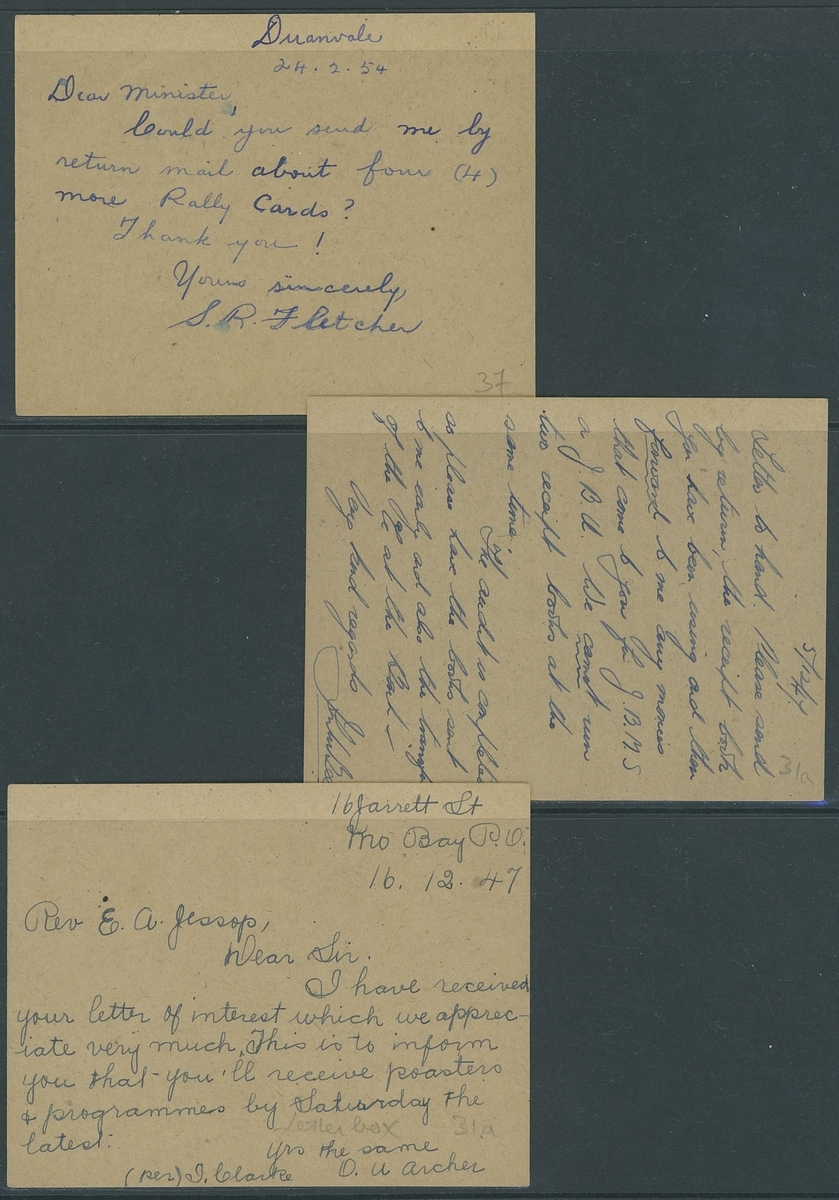 Duanvale
24.2.54
Dear Minister,
Could you send me by
return mail about four (4)
more Rally Cards?
Thank you!
Yours sincerely,
S. R. Fletcher
37
5/12/47
Letter to hand. Please send
by return, the receipt book
you have been using and then
forward to me any monies
that come to you for J.B.M.S
a J.B.U. We cannot run
two receipt books at the
same time.
The audit is
so please have the books sent
to me early and also the
of the at the
Very kind regards
31a
16 Jarrett St
Mo Bay P.O.
16. 12. 47
Rev E. A. Jessop,
Dear Sir.
I have received
your letter of interest which we apprec-
iate very much. This is to inform
you that you'll receive poasters
& programmes by Saturday the
latest.
letter box 31a
yrs the same
(per) I. Clarke O. U Archer